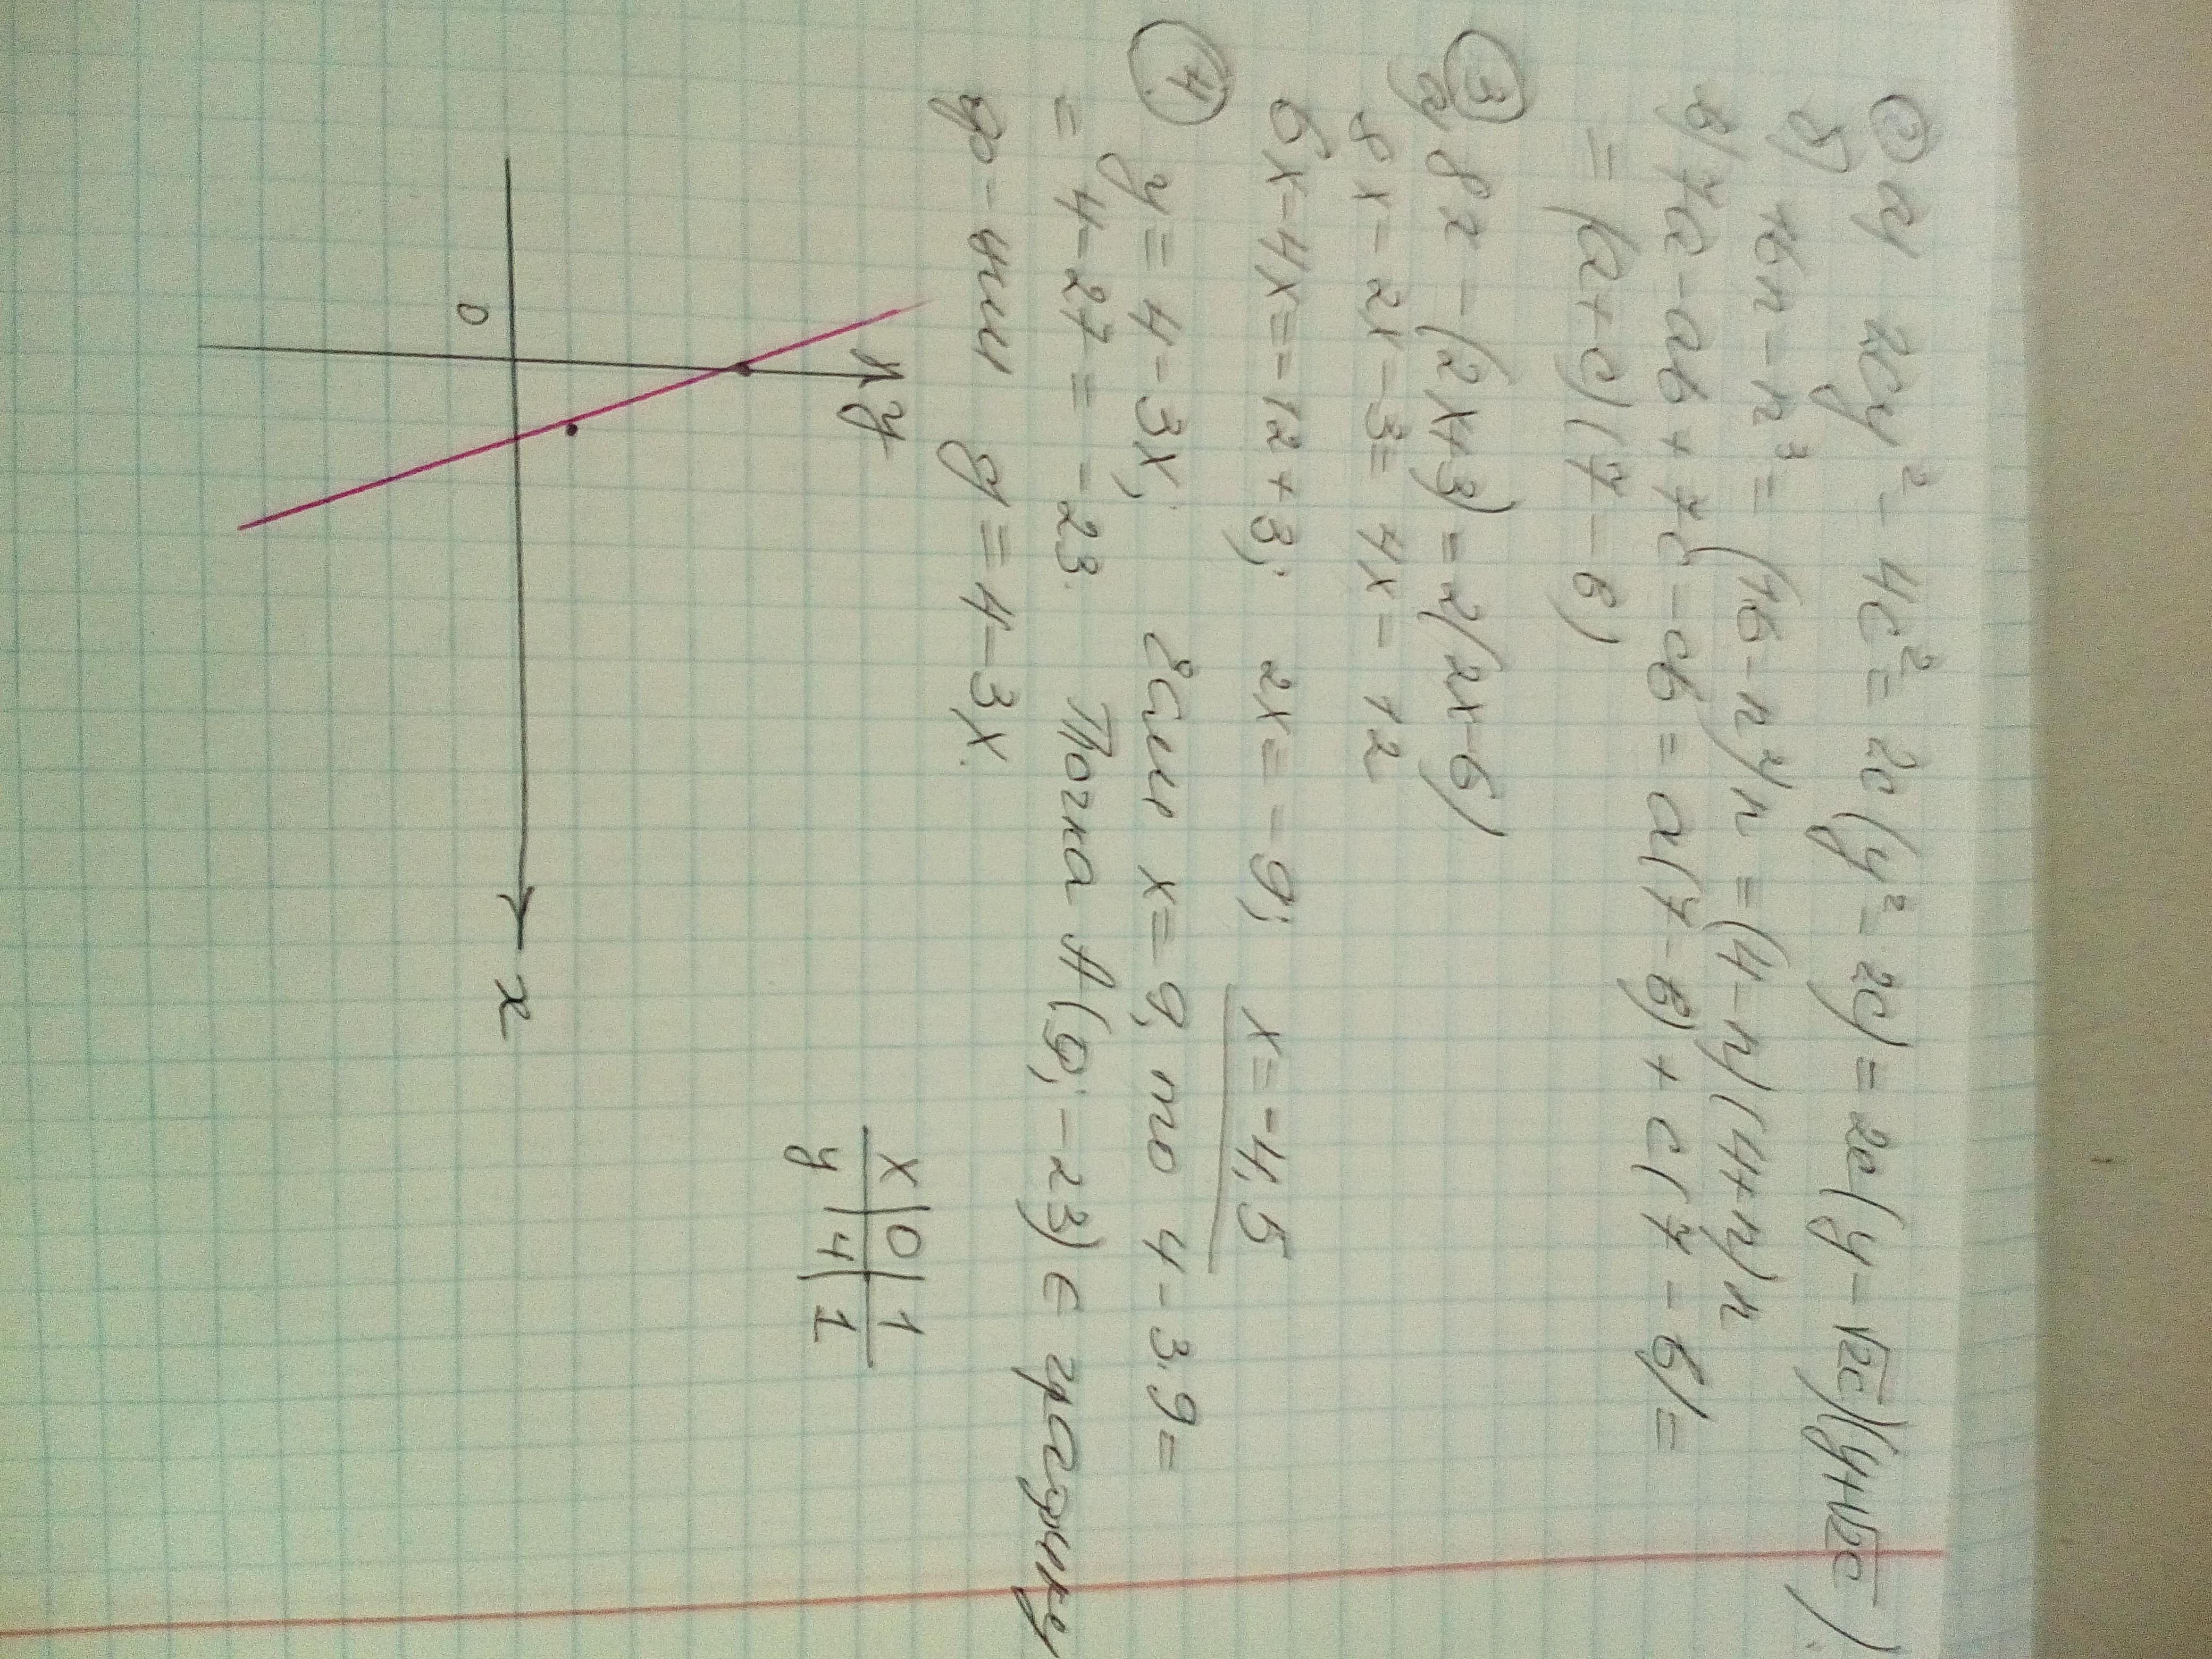 ② а) 2cy² - 4c² = 2c(y² - 2c) = 2c(y - √2c)(y + √2c).
б) 16n - n³ = (16 - n²)n = (4 - n)(4 + n)n
в) 7a - ab + 7c - cb = a(7 - b) + c(7 - b) =
= (a + c)(7 - b)
③ а) 8x - (2x + 3) = 2(2x - 6)
8x - 2x - 3 = 4x - 12
6x - 4x = -12 + 3; 2x = -9; x = -4,5
④ y = 4 - 3x; если x = 9, то 4 - 3·9 =
= 4 - 27 = -23. Точка A(9; -23) ∈ графику
ф-ции y = 4 - 3x.
x | 0 | 1
y | 4 | 1
y
0
x